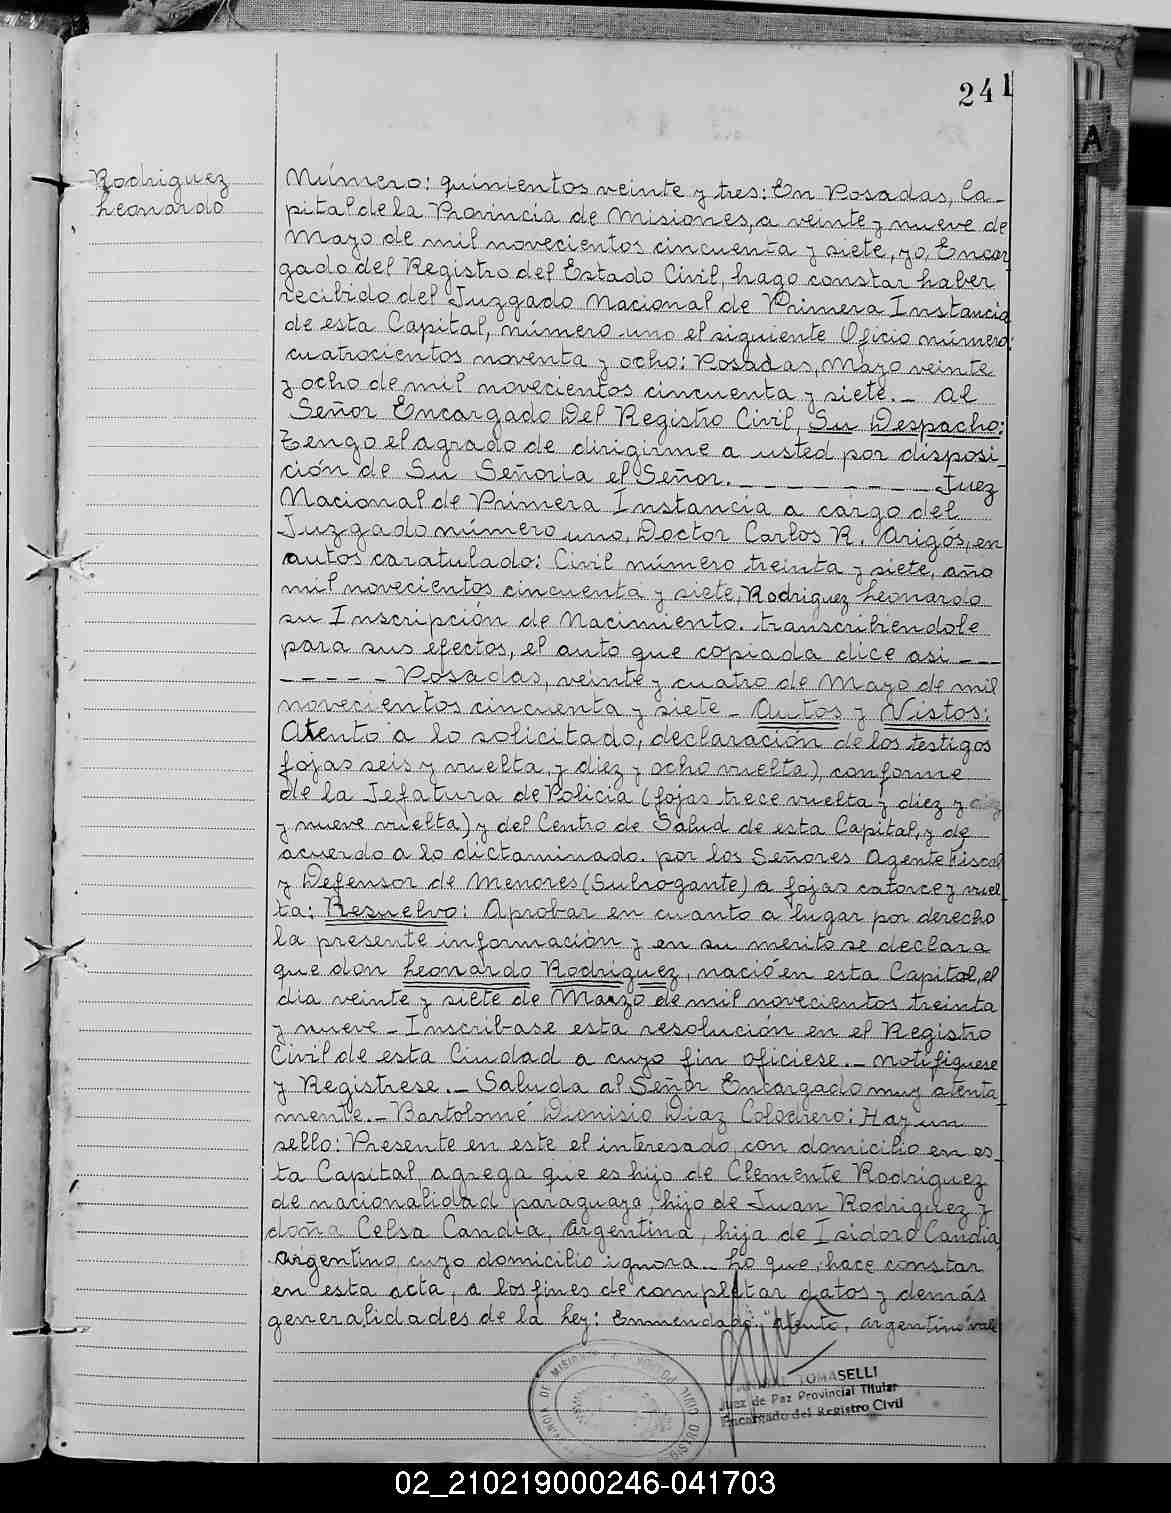 241
Rodriguez
Leonardo
Número: quinientos veinte y tres: En Posadas, Ca-
pital de la Provincia de Misiones, a veinte y nueve de
Mayo de mil novecientos cincuenta y siete, yo, Encar
gado del Registro del Estado Civil, hago constar haber
recibido del Juzgado Nacional de Primera Instancia
de esta Capital, número uno el siguiente Oficio número:
cuatrocientos noventa y ocho: Posadas, Mayo veinte
y ocho de mil novecientos cincuenta y siete.- Al
Señor Encargado Del Registro Civil, Su Despacho:
Tengo el agrado de dirigirme a usted por disposi_
ción de Su Señoria el Señor. _ _ _ _ _ _ _ _ _ Juez
Nacional de Primera Instancia a cargo del
Juzgado número uno, Doctor Carlos R. Arigós, en
autos caratulado: Civil número treinta y siete, año
mil novecientos cincuenta y siete, Rodriguez Leonardo
su Inscripción de Nacimiento. transcribiendole
para sus efectos, el auto que copiada dice asi _ _ _
_ _ _ _ _ Posadas, veinte y cuatro de Mayo de mil
novecientos cincuenta y siete - Autos y Vistos:
Atento a lo solicitado, declaración de los testigos
fojas seis y vuelta, y diez y ocho vuelta), conforme
de la Jefatura de Policia (fojas trece vuelta y diez y
y nueve vuelta) y del Centro de Salud de esta Capital, y de
acuerdo a lo dictaminado. por los Señores Agente Fiscal
y Defensor de Menores (Subrogante) a fojas catorce y vuel
ta: Resuelvo: Aprobar en cuanto a lugar por derecho
la presente información y en su merito se declara
que don Leonardo Rodriguez, nació en esta Capital, el
dia veinte y siete de Marzo de mil novecientos treinta
y nueve - Inscribase esta resolución en el Registro
Civil de esta Ciudad a cuyo fin oficiese.- Notifiquese
y Registrese.- Saluda al Señor Encargado muy atenta_
mente.- Bartolomé Dionisio Diaz Colodrero: Hay un
sello: Presente en este el interesado, con domicilio en es_
ta Capital, agrega que es hijo de Clemente Rodriguez
de nacionalidad paraguaya, hijo de Juan Rodriguez y
doña Celsa Candia, Argentina, hija de Isidoro Candia,
Argentino, cuyo domicilio ignora.- Lo que, hace constar
en esta acta, a los fines de completar datos y demás
generalidades de la Ley: Enmendado: Atento, argentino vale
TOMASELLI
Juez de Paz Provincial Titular
Encargado del Registro Civil
A
02_210219000246-041703